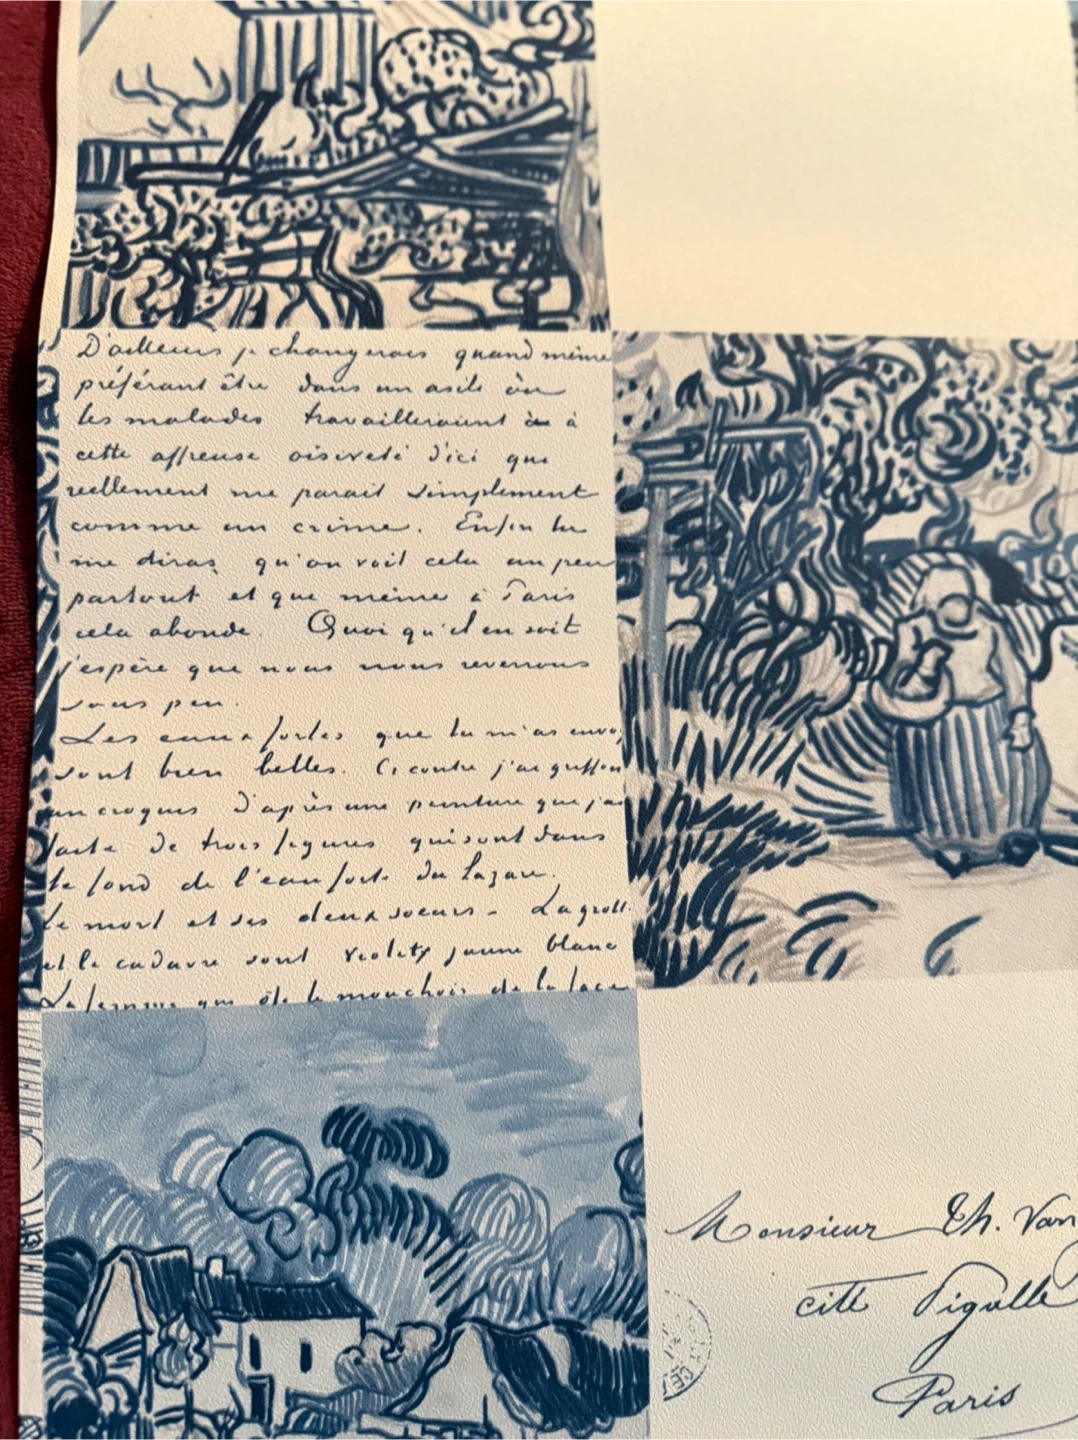 D'ailleurs je changerais quand même
préférant être dans un asile où
les malades travailleraient à
cette affreuse oisiveté d'ici que
reellement me parait simplement
comme un crime. Enfin tu
me diras, qu'on voit cela un peu
partout et que même à Paris
cela abonde. Quoi qu'il en soit
j'espère que nous nous reverrons
sous peu.
Les eaux fortes que tu m'as envoy
sont bien belles. Ci contre j'ai griffon
un croquis d'après une peinture que j'ai
faite de trois figures qui sont dans
le fond de l'eau forte du Lazare.
Le mort et ses deux soeurs - La grott
et le cadavre sont violet jaune blanc
La femme qui ôte le mouchoir de la face
Monsieur Th. Van
cité Pigalle
Paris